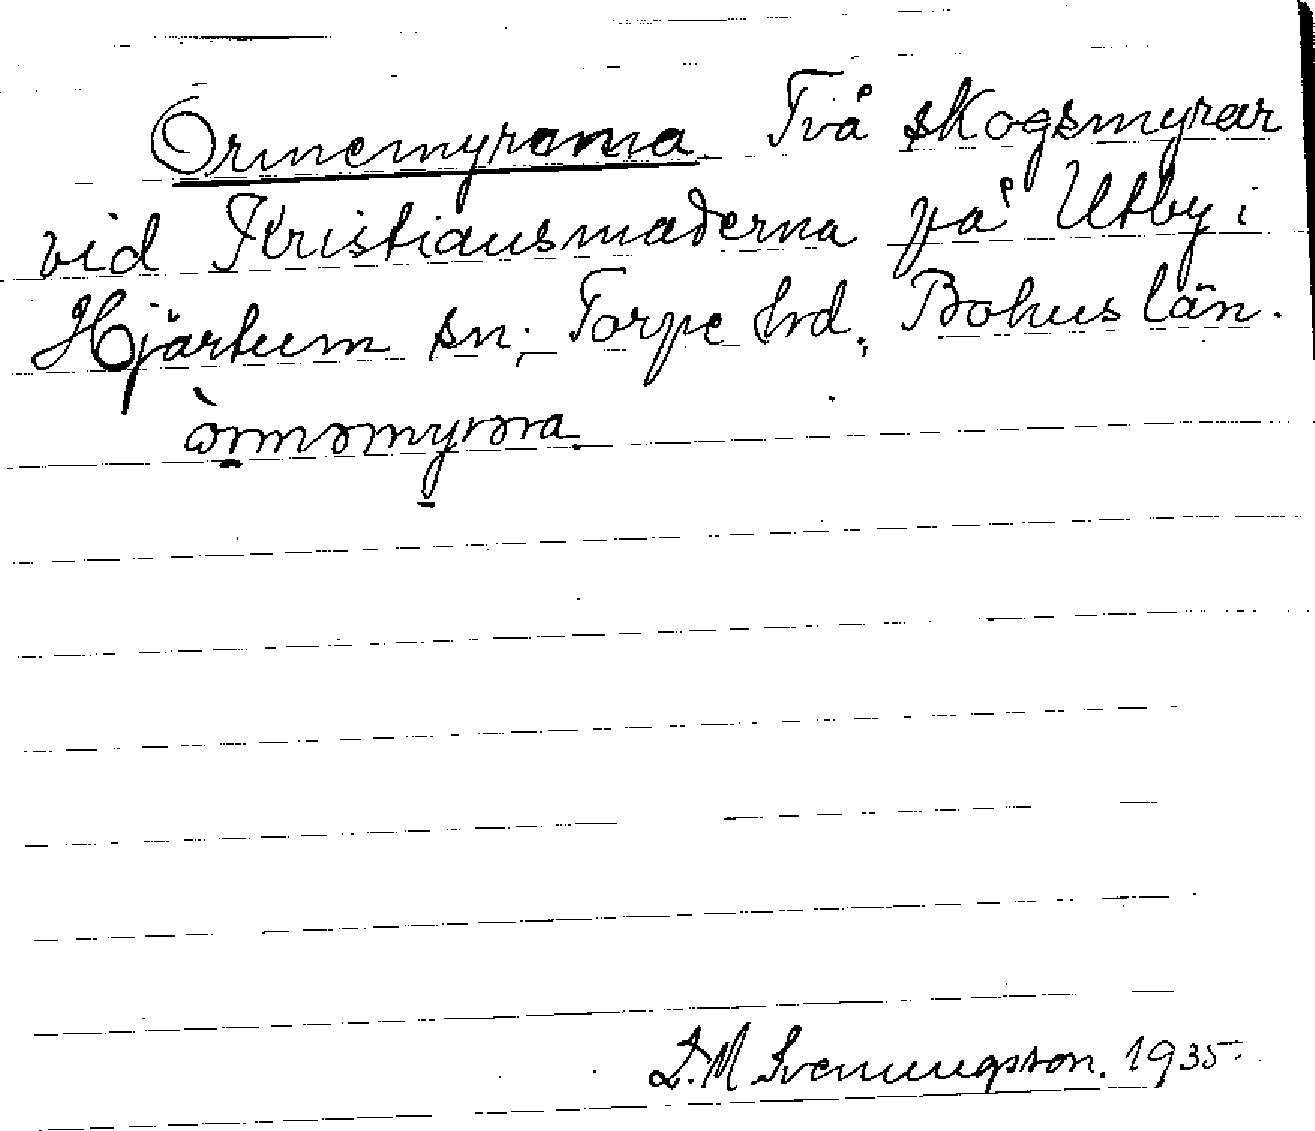 Ormemyrarna. Två skogsmyrar
vid Kristiansmaderna på Utby i
Hjärtum sn; Torpe hrd, Bohus län.
òrməmyrəra
D.M Svenningsson. 1935.